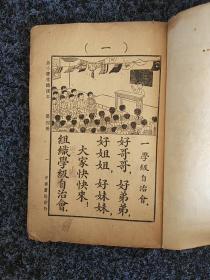 （一）
一 學級自治會，
好哥哥，好弟弟，
好姐姐，好妹妹，
大家快快來！
組織學級自治會，